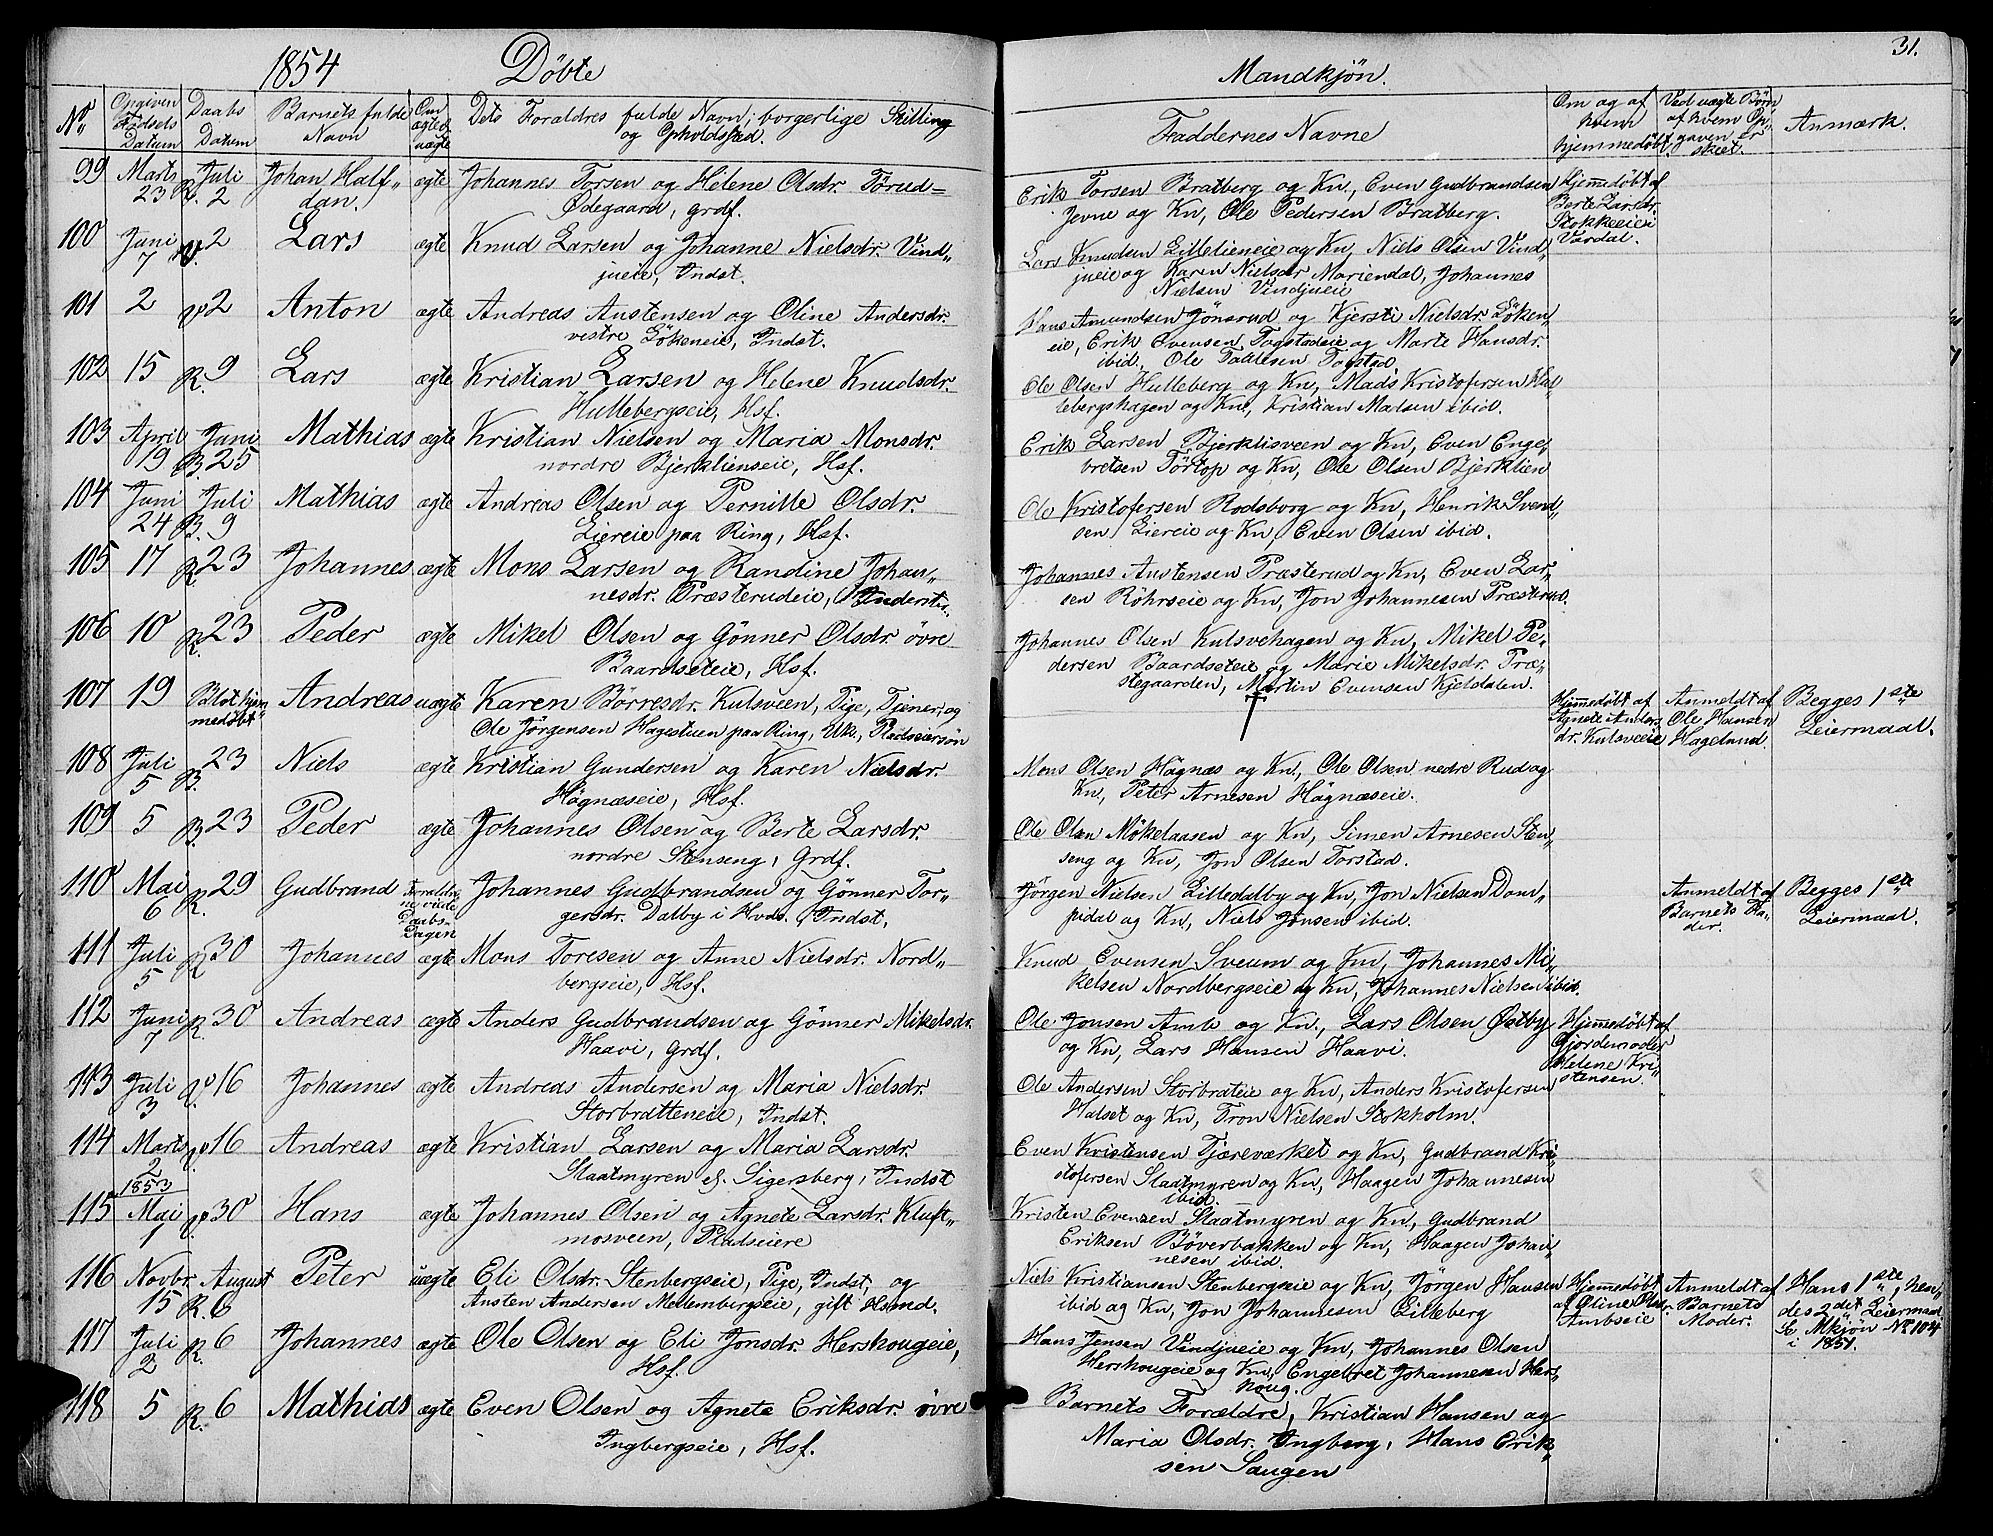 1854 Döbte
Mandkjøn. 31.
No. Opgiven Födsels Datum Daabs Datum Barnets fulde Navn Om ægte el. uægte Dets Foraldres fulde Navn, borgerlige Stilling og Opholdsted.
Faddernes Navne Om og af hvem hjemmedøbt Ved uægte Børn af hvem Opgaven er skeet. Anmærk.
99 Marts 23 R. Juli 2 Johan Half„ dan. ægte Johannes Torsen og Helene Olsdr. Törud=
Ödegaard, grdf.
Erik Torsen Bratberg og Kn., Even Gudbrandsen
Jevne og Kn, Ole Pedersen Bratberg.
Hjemedöbt af
Berte Larsdr.
Stokkeeie i
Vardal.
100 Juni 7 V. 2 Lars ægte Knud Larsen og Johanne Nielsdr. Vind„
jueie, Indst.
Lars Knudsen Lillelieneie og Kn, Niels Olsen Vind„
jueie og Karen Nielsdr Mariendal, Johannes
Nielsen Vindjueie
101 2 V. 2 Anton ægte Andreas Austensen og Oline Andersdr.
vestre Lökeneie, Indst.
Hans Amundsen Jönsrud og Kjersti Nielsdr. Löken„
eie, Erik Evensen Fogstadeie og Marte Hansdr.
ibid., Ole Paulsen Fogstad.
102 15 R. 9 Lars ægte Kristian Larsen og Helene Knudsdr.
Hullebergseie, Hsf.
Ole Olsen Hulleberg og Kn, Mads Kristofersen Hul
lebergshagen og Kn, Kristian Madsen ibid.
103 April 19 B. Juni 25 Mathias ægte Kristian Nielsen og Maria Monsdr.
nordre Bjerklienseie, Hsf.
Erik Larsen Bjerklisveen og Kn, Even Enge„
bretsen Törtop og Kn, Ole Olsen Bjerklien
104 Juni 24 B. Juli 9 Mathias ægte Andreas Olsen og Pernille Olsdr.
Liereie paa Ring, Hsf.
Ole Kristofersen Rodsborg og Kn, Henrik Svend„
sen Liereie og Kn, Even Olsen ibid.
105 17 R. 23 Johannes ægte Mons Larsen og Randine Johan„
nesdr. Præsterudeie, Inderster.
Johannes Austensen Præsterud og Kn, Even Lar„
sen Röhrseie og Kn, Jon Johannesen Præsterud.
106 10 R. 23 Peder ægte Mikel Olsen og Gönner Olsdr. övre
Baardseteie, Hsf.
Johannes Olsen Kulsvehagen og Kn, Mikel Pe„
dersen Baardseteie og Marie Mikelsdr. Præ„
stegaarden, Martin Evensen Kjeldalen.
107 19 Blot hjem„ medöbt Andreas uægte Karen Börresdr. Kulsveen, Pige, Tjener, og
Ole Jörgensen Hagestuen paa Ring, Uk, Pladseiersön
†
Hjemedöbt af
Agnete Anders
dr. Kulsveeie
Anmeldt af
Ole Hansen
Hagelund.
Begges 1ste
Leiermaal.
108 Juli 5 B. 23 Niels ægte Kristian Gundersen og Karen Nielsdr.
Högnæseie, Hsf.
Mons Olsen Högnæs og Kn., Ole Olsen nedre Rud og
Kn, Peter Arnesen Högnæseie.
109 5 B. 23 Peder ægte Johannes Olsen og Berte Larsdr.
nordre Stenseng, Grdf.
Ole Olsen Mökelaasen og Kn, Simen Arnesen Sten„
seng og Kn, Jon Olsen Torstad.
110 Mai 6 R. 29 Gudbrand Foraldre
ne viede
Daabs-
Dagen Johannes Gudbrandsen og Gönner Tor„
gersdr. Dalby i Hvds. Indst.
Jörgen Nielsen Lilledalby og Kn, Jon Nielsen Dom„
pidal og Kn, Niels Jonsen ibid.
Anmeldt af
Barnets Fa„
der.
Begges 1ste
Leiermaal.
111 Juli 5 R. 30 Johannes ægte Mons Toresen og Anne Nielsdr. Nord„
bergseie, Hsf.
Knud Evensen Sveum og Kn, Johannes Mi„
kelsen Nordbergseie og Kn, Johannes Nielsen ibid.
112 Juni 7 R. 30 Andreas ægte Anders Gudbrandsen og Gönner Mikelsdr.
Haavi, Grdf.
Ole Jonsen Amb og Kn., Lars Olsen Østby
og Kn, Lars Hansen Haavi.
Hjemedöbt af
Gjordemoder
Helene Kri„
stensen.
113 Juli 3 V. 16 Johannes ægte Andreas Andersen og Maria Nielsdr.
Storbratteneie, Indst.
Ole Andersen Storbrateie og Kn, Anders Kristofersen
Halset og Kn, Tron Nielsen Stokholm.
114 Marts 2 V. 16 Andreas ægte Kristian Larsen og Maria Larsdr.
Slaatmyren ef. Sigersberg, Indst
Even Kristensen Tjæreværket og Kn, Gudbrand Kri„
stofersen Slaatmyren og Kn, Haagen Johannesen
ibid.
115 1853 Mai 1 V. 30 Hans ægte Johannes Olsen og Agnete Larsdr. Kluft„
mosveen, Pladseiere
Kristen Evensen Slaatmyren og Kn, Gudbrand
Eriksen Böverbakken og Kn, Haagen Johan„
nesen ibid.
116 Novbr. 15 R. August 6 Peter uægte Eli Olsdr. Stenbergseie, Pige, Indst, og
Austen Andersen Mellembergseie, gift Hsmd.
Niels Kristiansen Stenbergseie og Kn, Jörgen Hansen
ibid og Kn, Jon Johannesen Lilleberg
Hjemedöbt
af Oline Olsd.
Ambseie
Anmeldt af
Barnets
Moder.
Hans 1ste, hen„
des 2det Leiermaal
Se Mkjön No 104
i 1851.
117 Juli 2 R. 6 Johannes ægte Ole Olsen og Eli Jonsdr. Herskougeie,
Hsf.
Hans Jensen Vindjueie og Kn, Johannes Olsen
Herskougeie og Kn, Engebret Johannesen Her„
skoug.
118 5 R. 6 Mathias ægte Even Olsen og Agnete Eriksdr. övre
Ingbergseie, Hsf.
Barnets Forældre, Kristian Hansen og
Maria Olsdr. Ingberg, Hans Erik„
sen Saugen